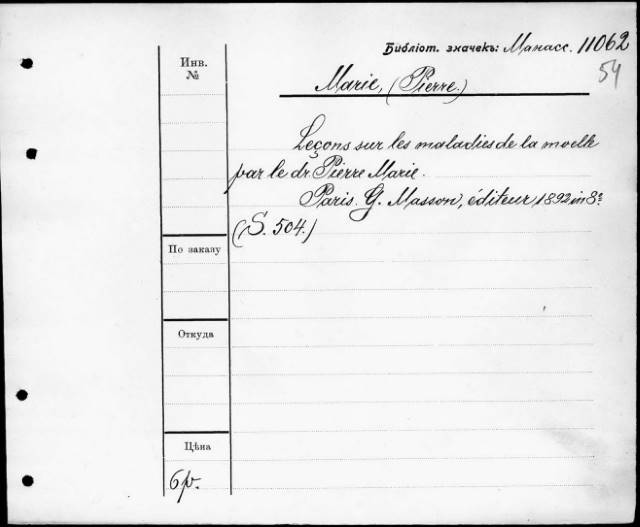 Библіот. значекъ: Манасс. 11062
54
Инв.
№
Marie, (Pierre.)
Leçons sur les maladies de la moelle
par le dr. Pierre Marie.
Paris. G. Masson, éditeur, 1892 in 8º
(S. 504.)
По заказу
Откуда
Цѣна
6р.